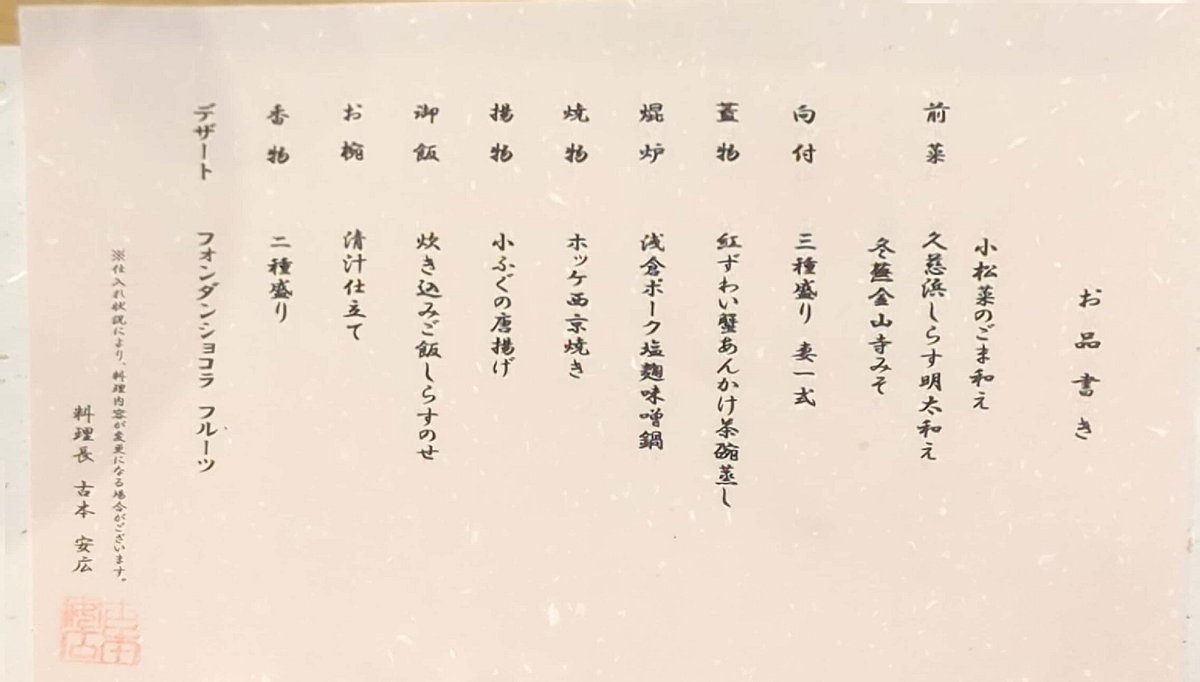 お品書き
小松菜のごま和え
前菜 久慈浜しらす明太和え
冬蕪金山寺みそ
向付 三種盛り 妻一式
蓋物 紅ずわい蟹あんかけ茶碗蒸し
焜炉 浅倉ポーク塩麹味噌鍋
焼物 ホッケ西京焼き
揚物 小ふぐの唐揚げ
御飯 炊き込みご飯しらすのせ
お椀 清汁仕立て
香物 二種盛り
デザート フォンダンショコラ フルーツ
※仕入れ状況により、料理内容が変更になる場合がございます。
料理長 古本 安広